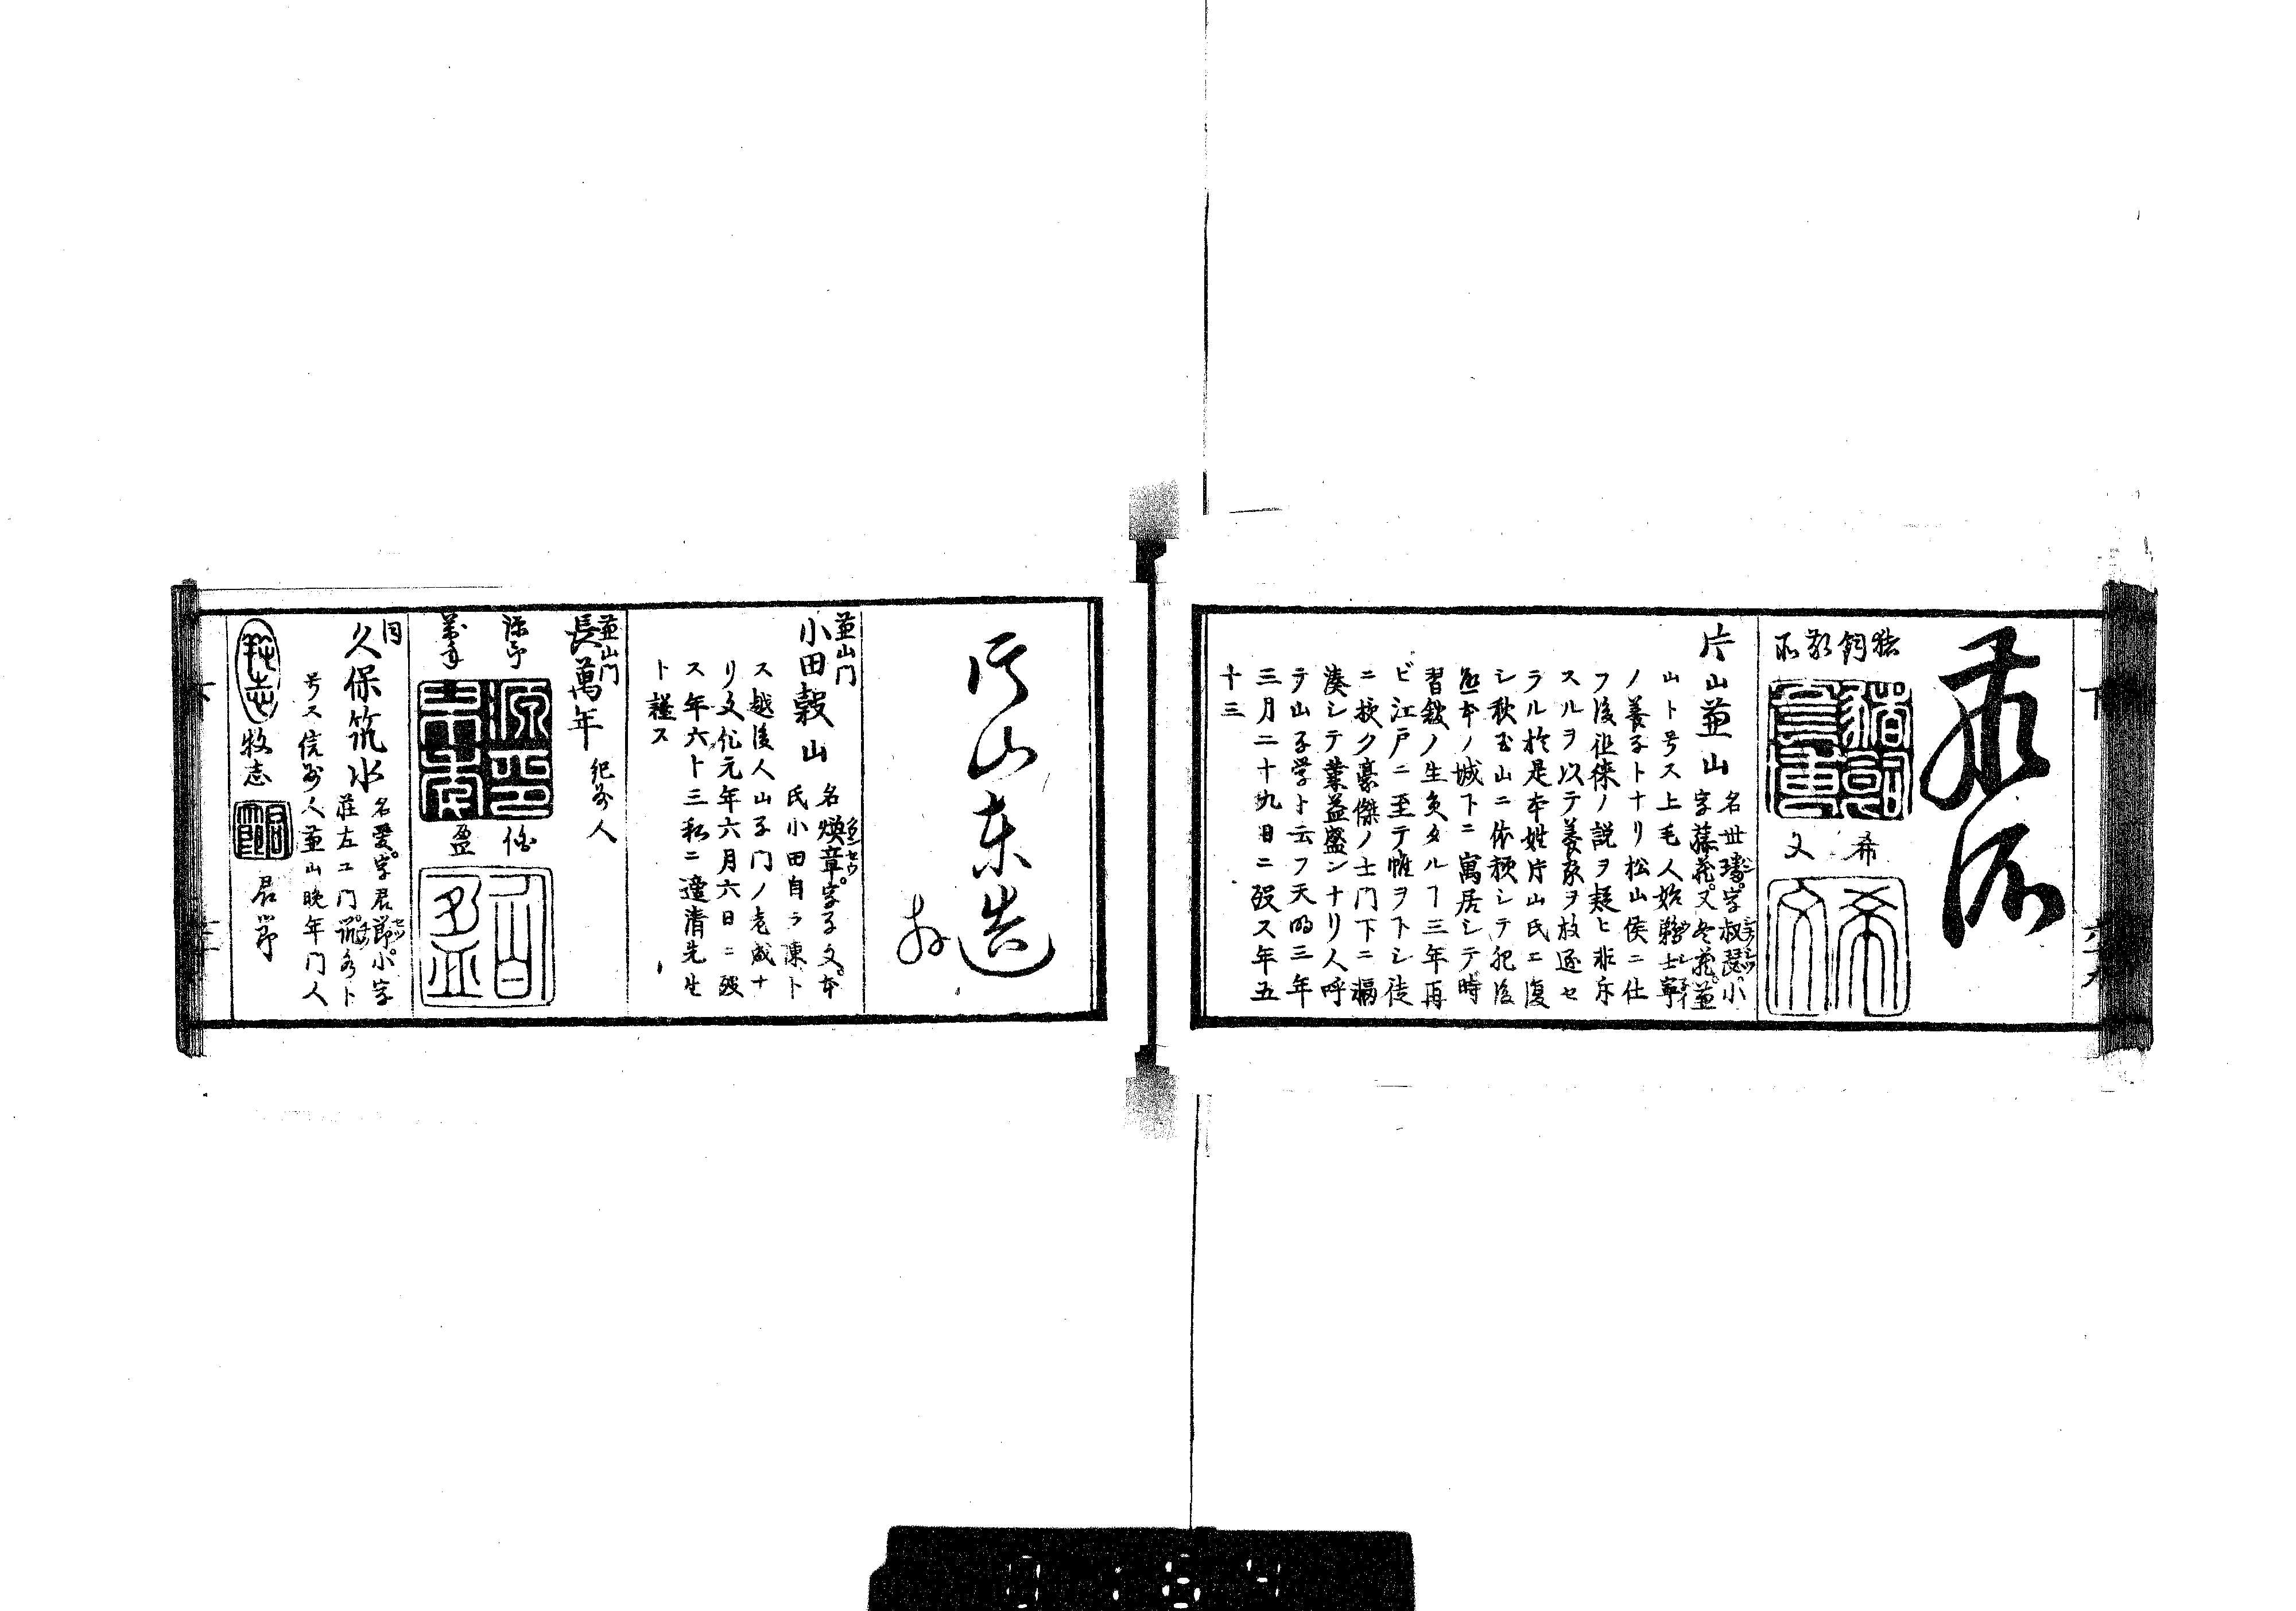 猪飼敬所
希文
片山兼山
名世璠。字叔瑟。小
字藤蔵。又冬蔵。兼
山ト号ス上毛人始鵜士寧
ノ養子トナリ松山侯ニ仕
フ後徂徠ノ説ヲ疑ヒ非斥
スルヲ以テ養家ヲ放逐セ
ラル於是本姓片山氏ニ復
シ秋玉山ニ依頼シテ肥後
熊本ノ城下ニ寓居シテ時
習館ノ生員タルヿ三年再
ビ江戸ニ至テ帷ヲ下シ徒
ニ授ク豪傑ノ士門下ニ輻
湊シテ業益盛ンナリ人呼
テ山子学ト云フ天明三年
三月二十九日ニ殁ス年五
十三
片山東造
兼山門
小田穀山
名煥章。字子文。本
氏小田自ラ陳ト
ス越後人山子門ノ老成ナ
リ文化元年六月六日ニ殁
ス年六十三私ニ達清先生
ト謚ス
兼山門
長萬年
紀州人
同
久保筑水
名愛。字君節。小字
荘左エ門。筑水ト
号ス信州人兼山晩年門人
牧志
君節